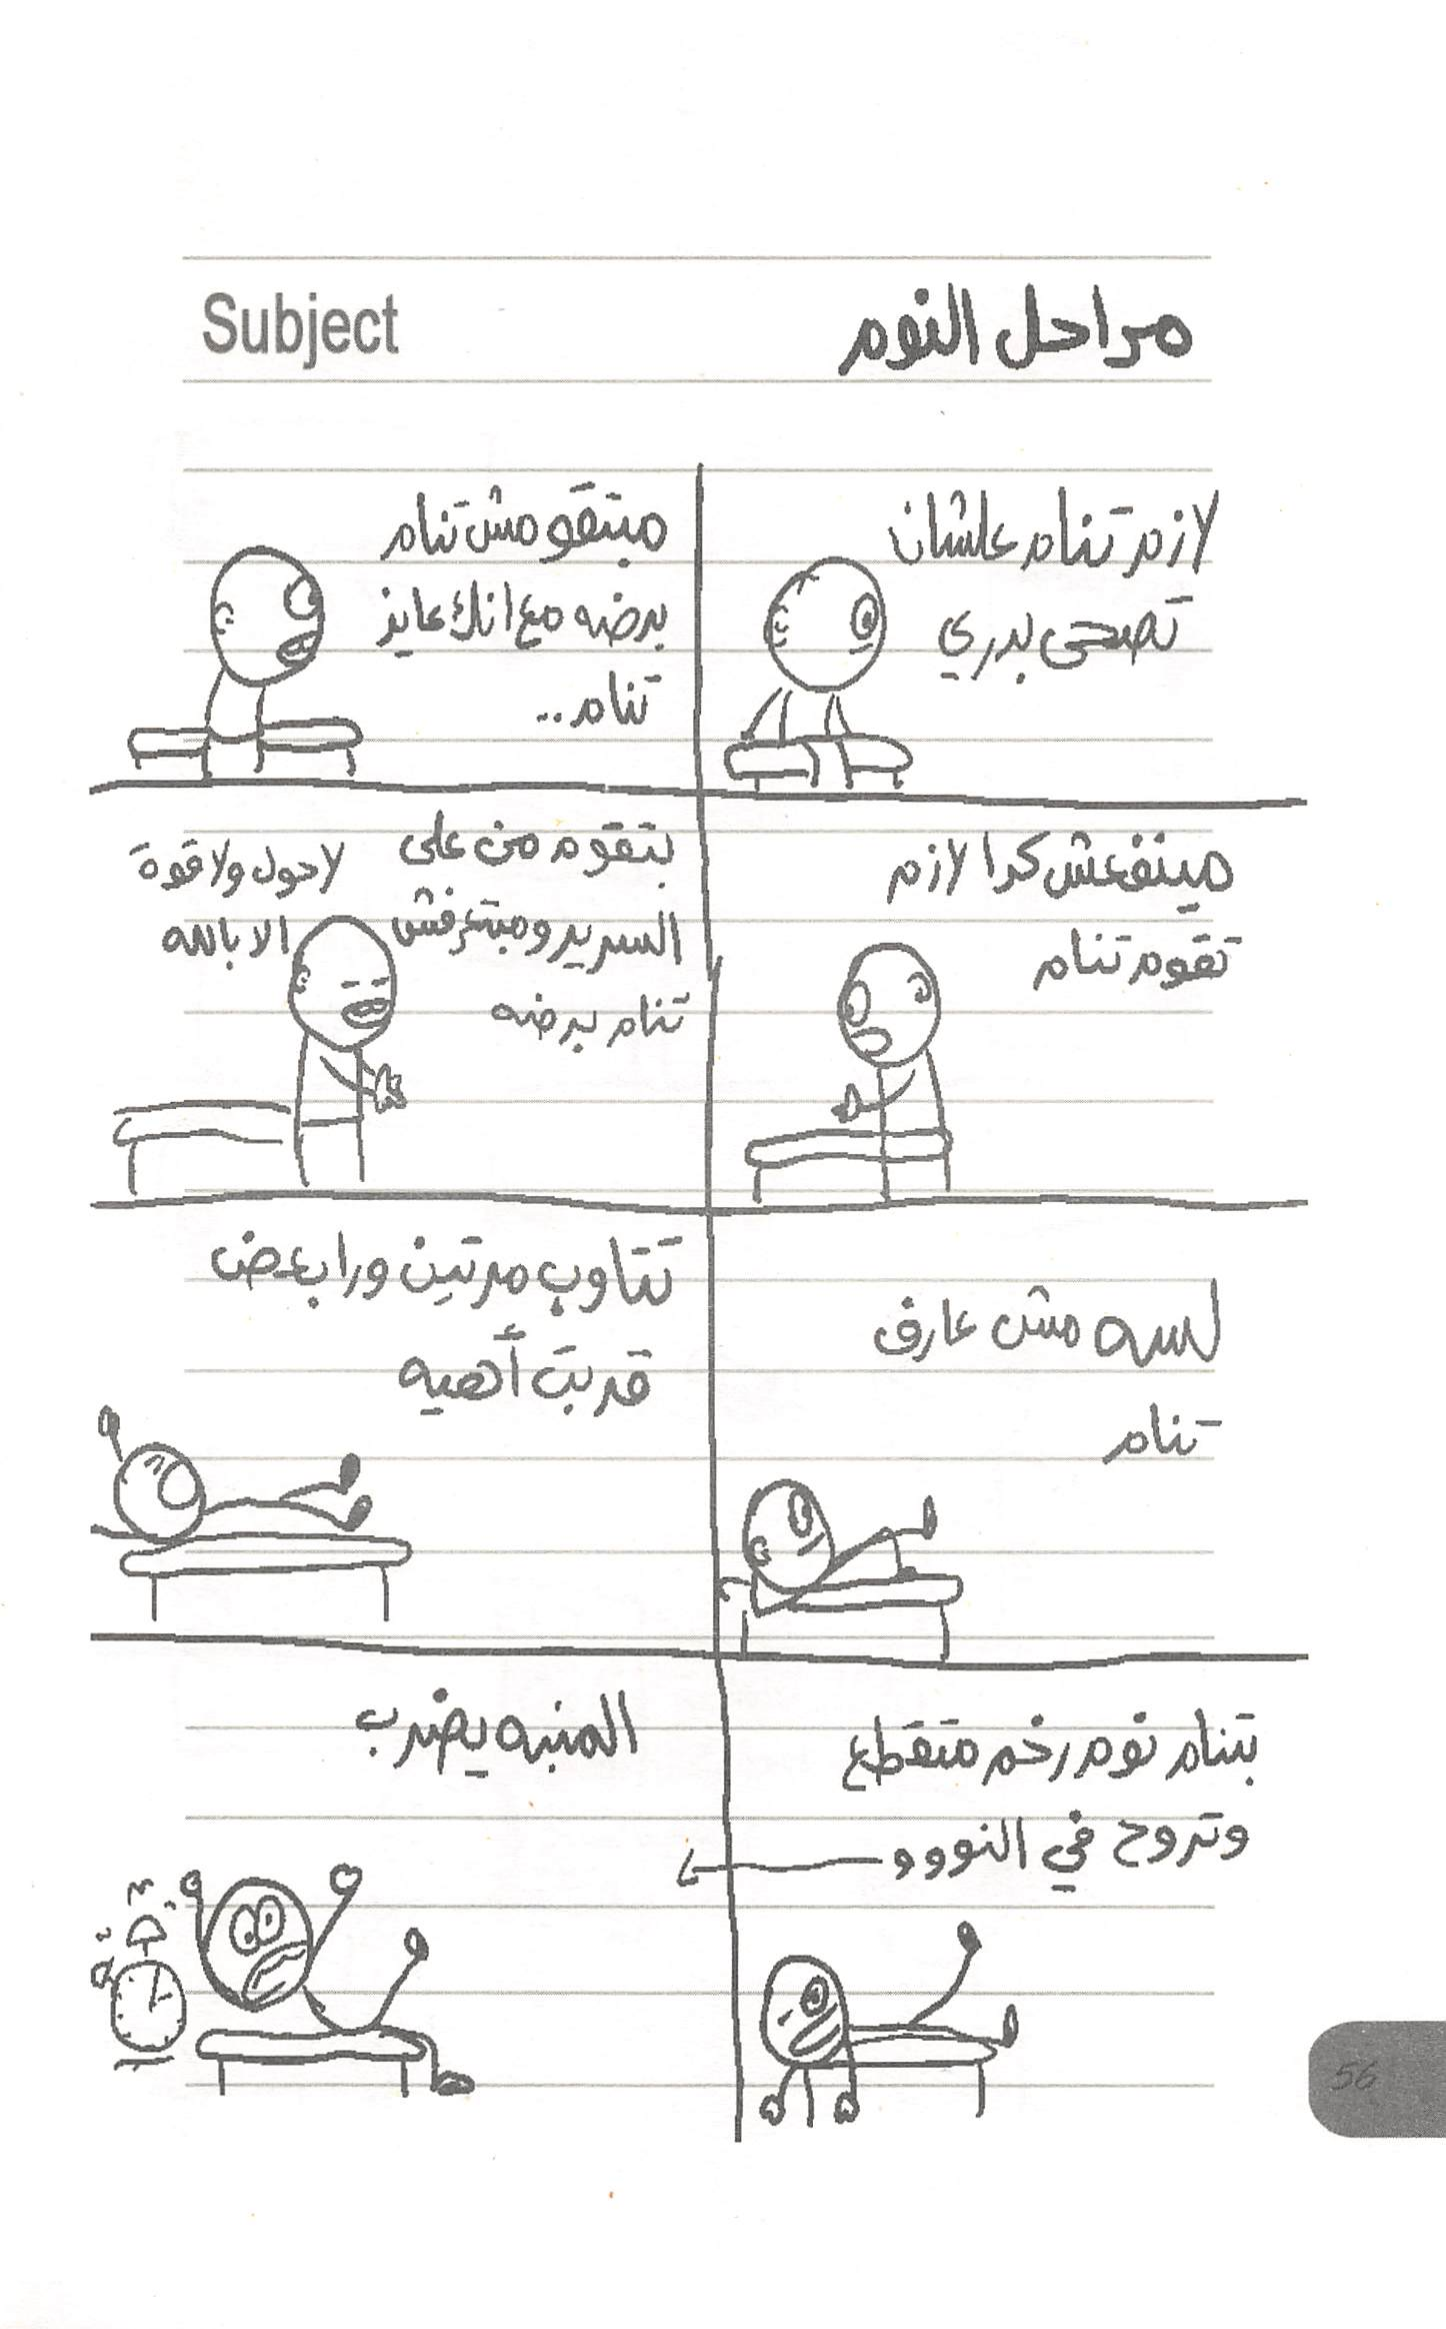 Subject
مراحل النوم
لازم تنام علشان
تصحى بدري
مبتقومش تنام
برضه مع انك عايز
تنام..
مينفعش كدا لازم
تقوم تنام
بتقوم من على
السرير ومبتعرفش
تنام برضه
لاحول ولا قوة
الا بالله
لسه مش عارف
تنام
تتاوب مرتين ورا بعض
قربت أهيه
بتنام نوم رخم متقطع
وتروح في النووو
المنبه يضرب
56